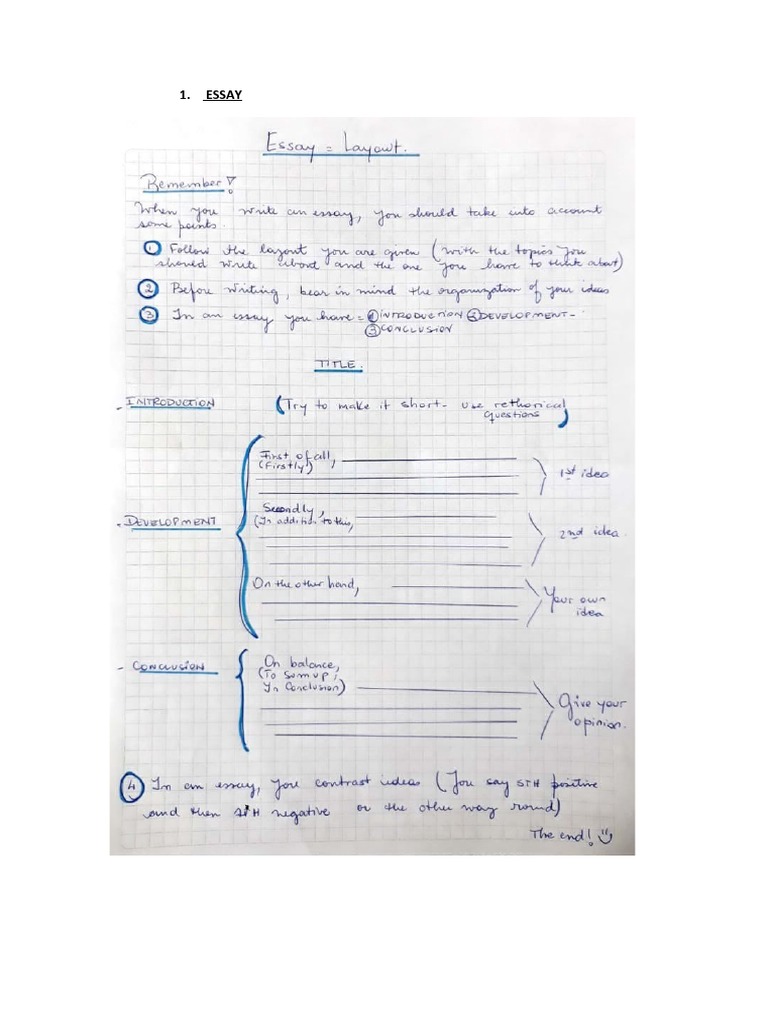 1. ESSAY
Essay = Layout.
Remember!
When you write an essay, you should take into account
some points.
1 Follow the layout you are given (with the topics you
should write about and the one you have to think about)
2 Before writing, bear in mind the organization of your ideas
3 In an essay you have = 1 INTRODUCTION 2 DEVELOPMENT-
3 CONCLUSION
TITLE.
- INTRODUCTION (Try to make it short- use rethorical
questions)
First of all,
(Firstly)
1st idea
- DEVELOPMENT
Secondly,
(In addition to this,
2nd idea.
On the other hand,
Your own
idea
- CONCLUSION
On balance,
(To sum up,
In Conclusion)
Give your
opinion.
4 In an essay, you contrast ideas (You say STH positive
and then STH negative or the other way round)
The end!